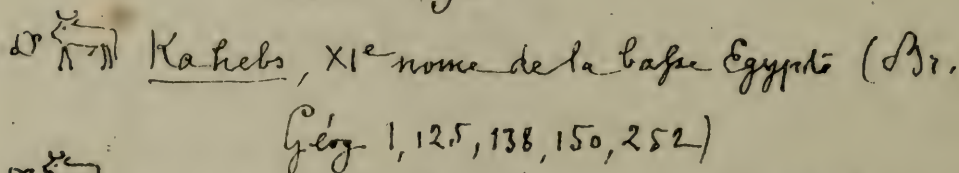 Kahebs, XIᵉ nome de la basse Egypte (Br.
Géog 1, 125, 138, 150, 252)